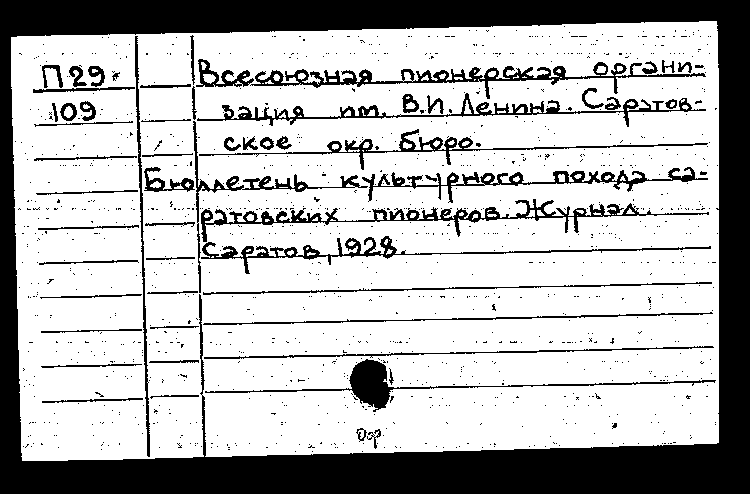 П29 Всесоюзная пионерская органи-
109 зация им. В.И. Ленина. Саратов-
ское окр. бюро.
Бюллетень культурного похода са-
ратовских пионеров. Журнал.
Саратов, 1928.